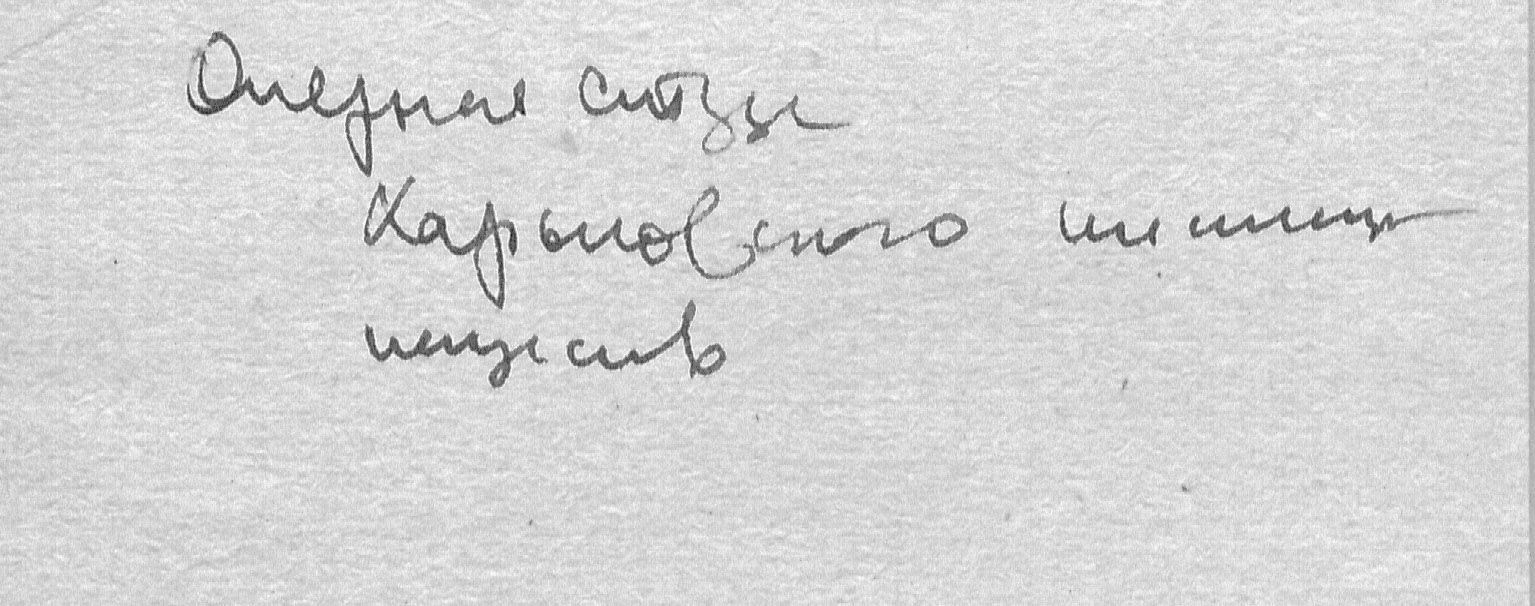 Оперная студия
Харьковского института
искусств